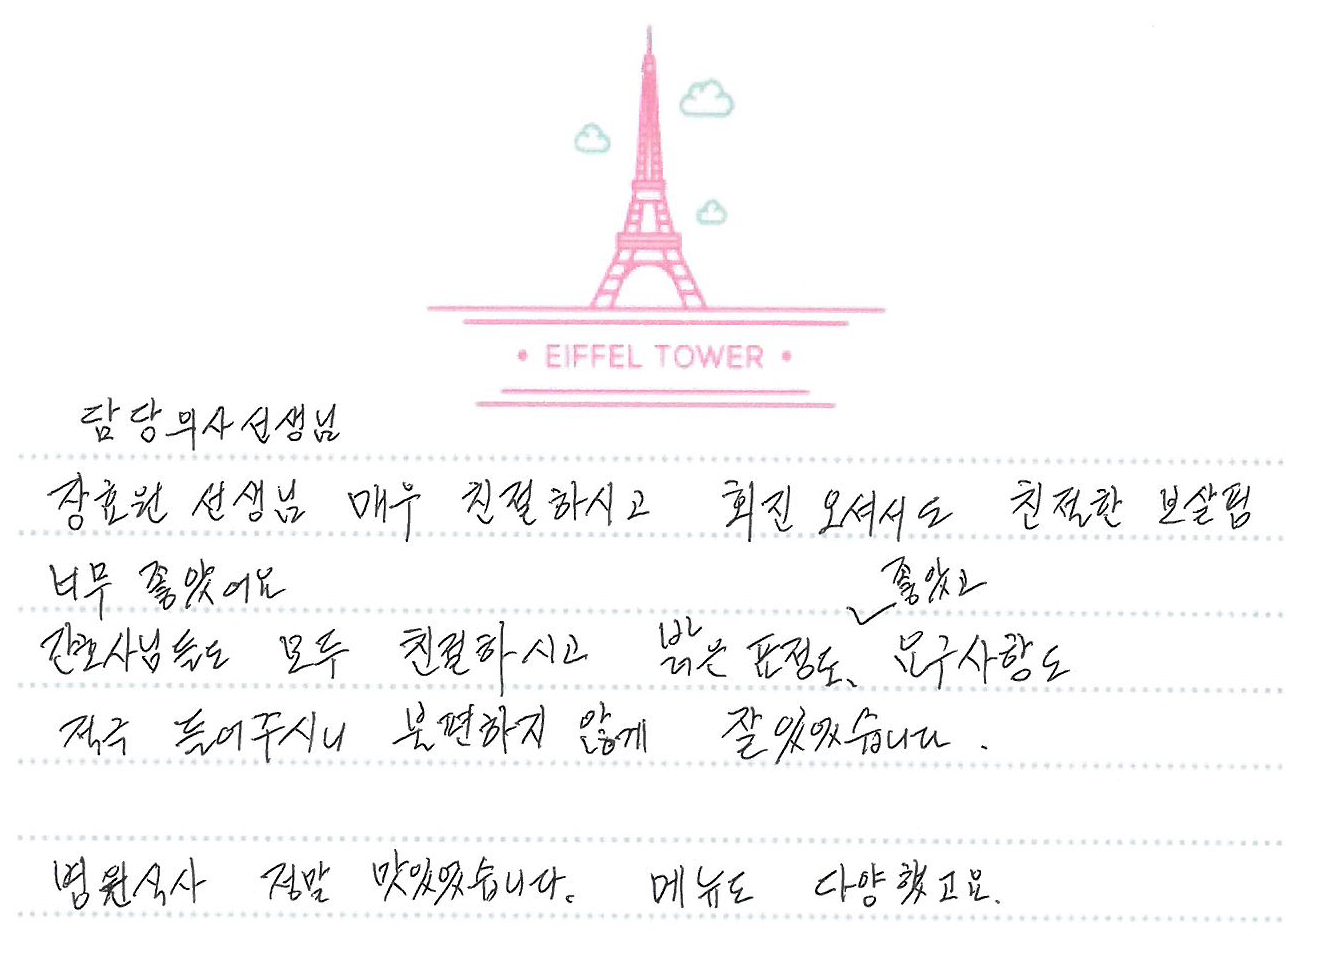 • EIFFEL TOWER •
담당의사선생님
장효원 선생님 매우 친절하시고 회진 오셔서도 친절한 보살핌
너무 좋았어요
간호사님들도 모두 친절하시고 밝은 표정도, ✓좋았고 문구사항도
적극 들어주시니 불편하지 않게 잘있었습니다.
병원식사 정말 맛있었습니다. 메뉴도 다양했고요.